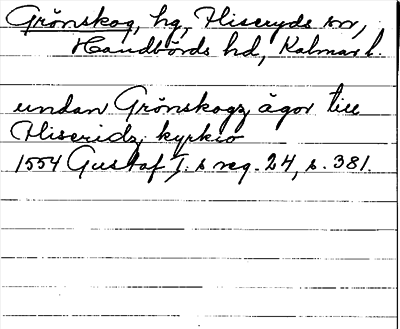 Grönskog, hg, Hliseryds sn,
Handbörds hd, Kalmar l.
undan Grönskogz ägor till
Hliseridz kyrkio
1554 Gustaf I:s reg. 24, s. 381.